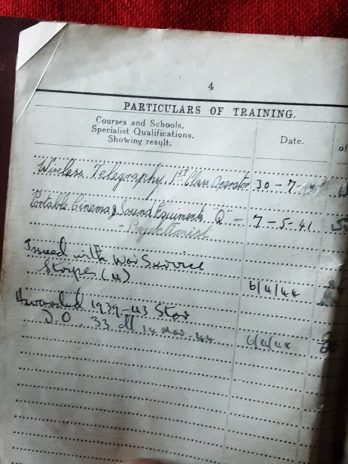 4
PARTICULARS OF TRAINING.
Courses and Schools. Date. of
Specialist Qualifications.
Showing result.
Wireless Telegraphy. 1st Class Operator 30-7-
"Portable Cinema & Sound Equipments "Q" - 7-5-41
- Projectionist
Issued with War Service
Stripes (4) 6/4/44
Awarded 1939-43 Star
D.O. 33 14 Mar 44 6/4/44